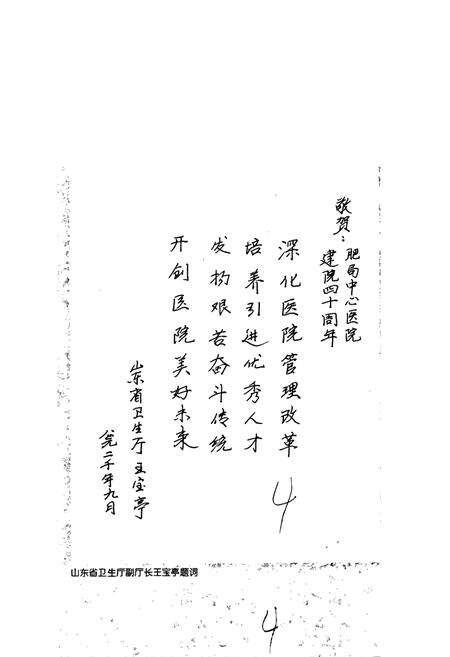 敬贺：肥局中心医院
建院四十周年
深化医院管理改革
培养引进优秀人才
发扬艰苦奋斗传统
开创医院美好未来
山东省卫生厅王宝亭
二千年九月
4
山东省卫生厅副厅长王宝亭题词
4